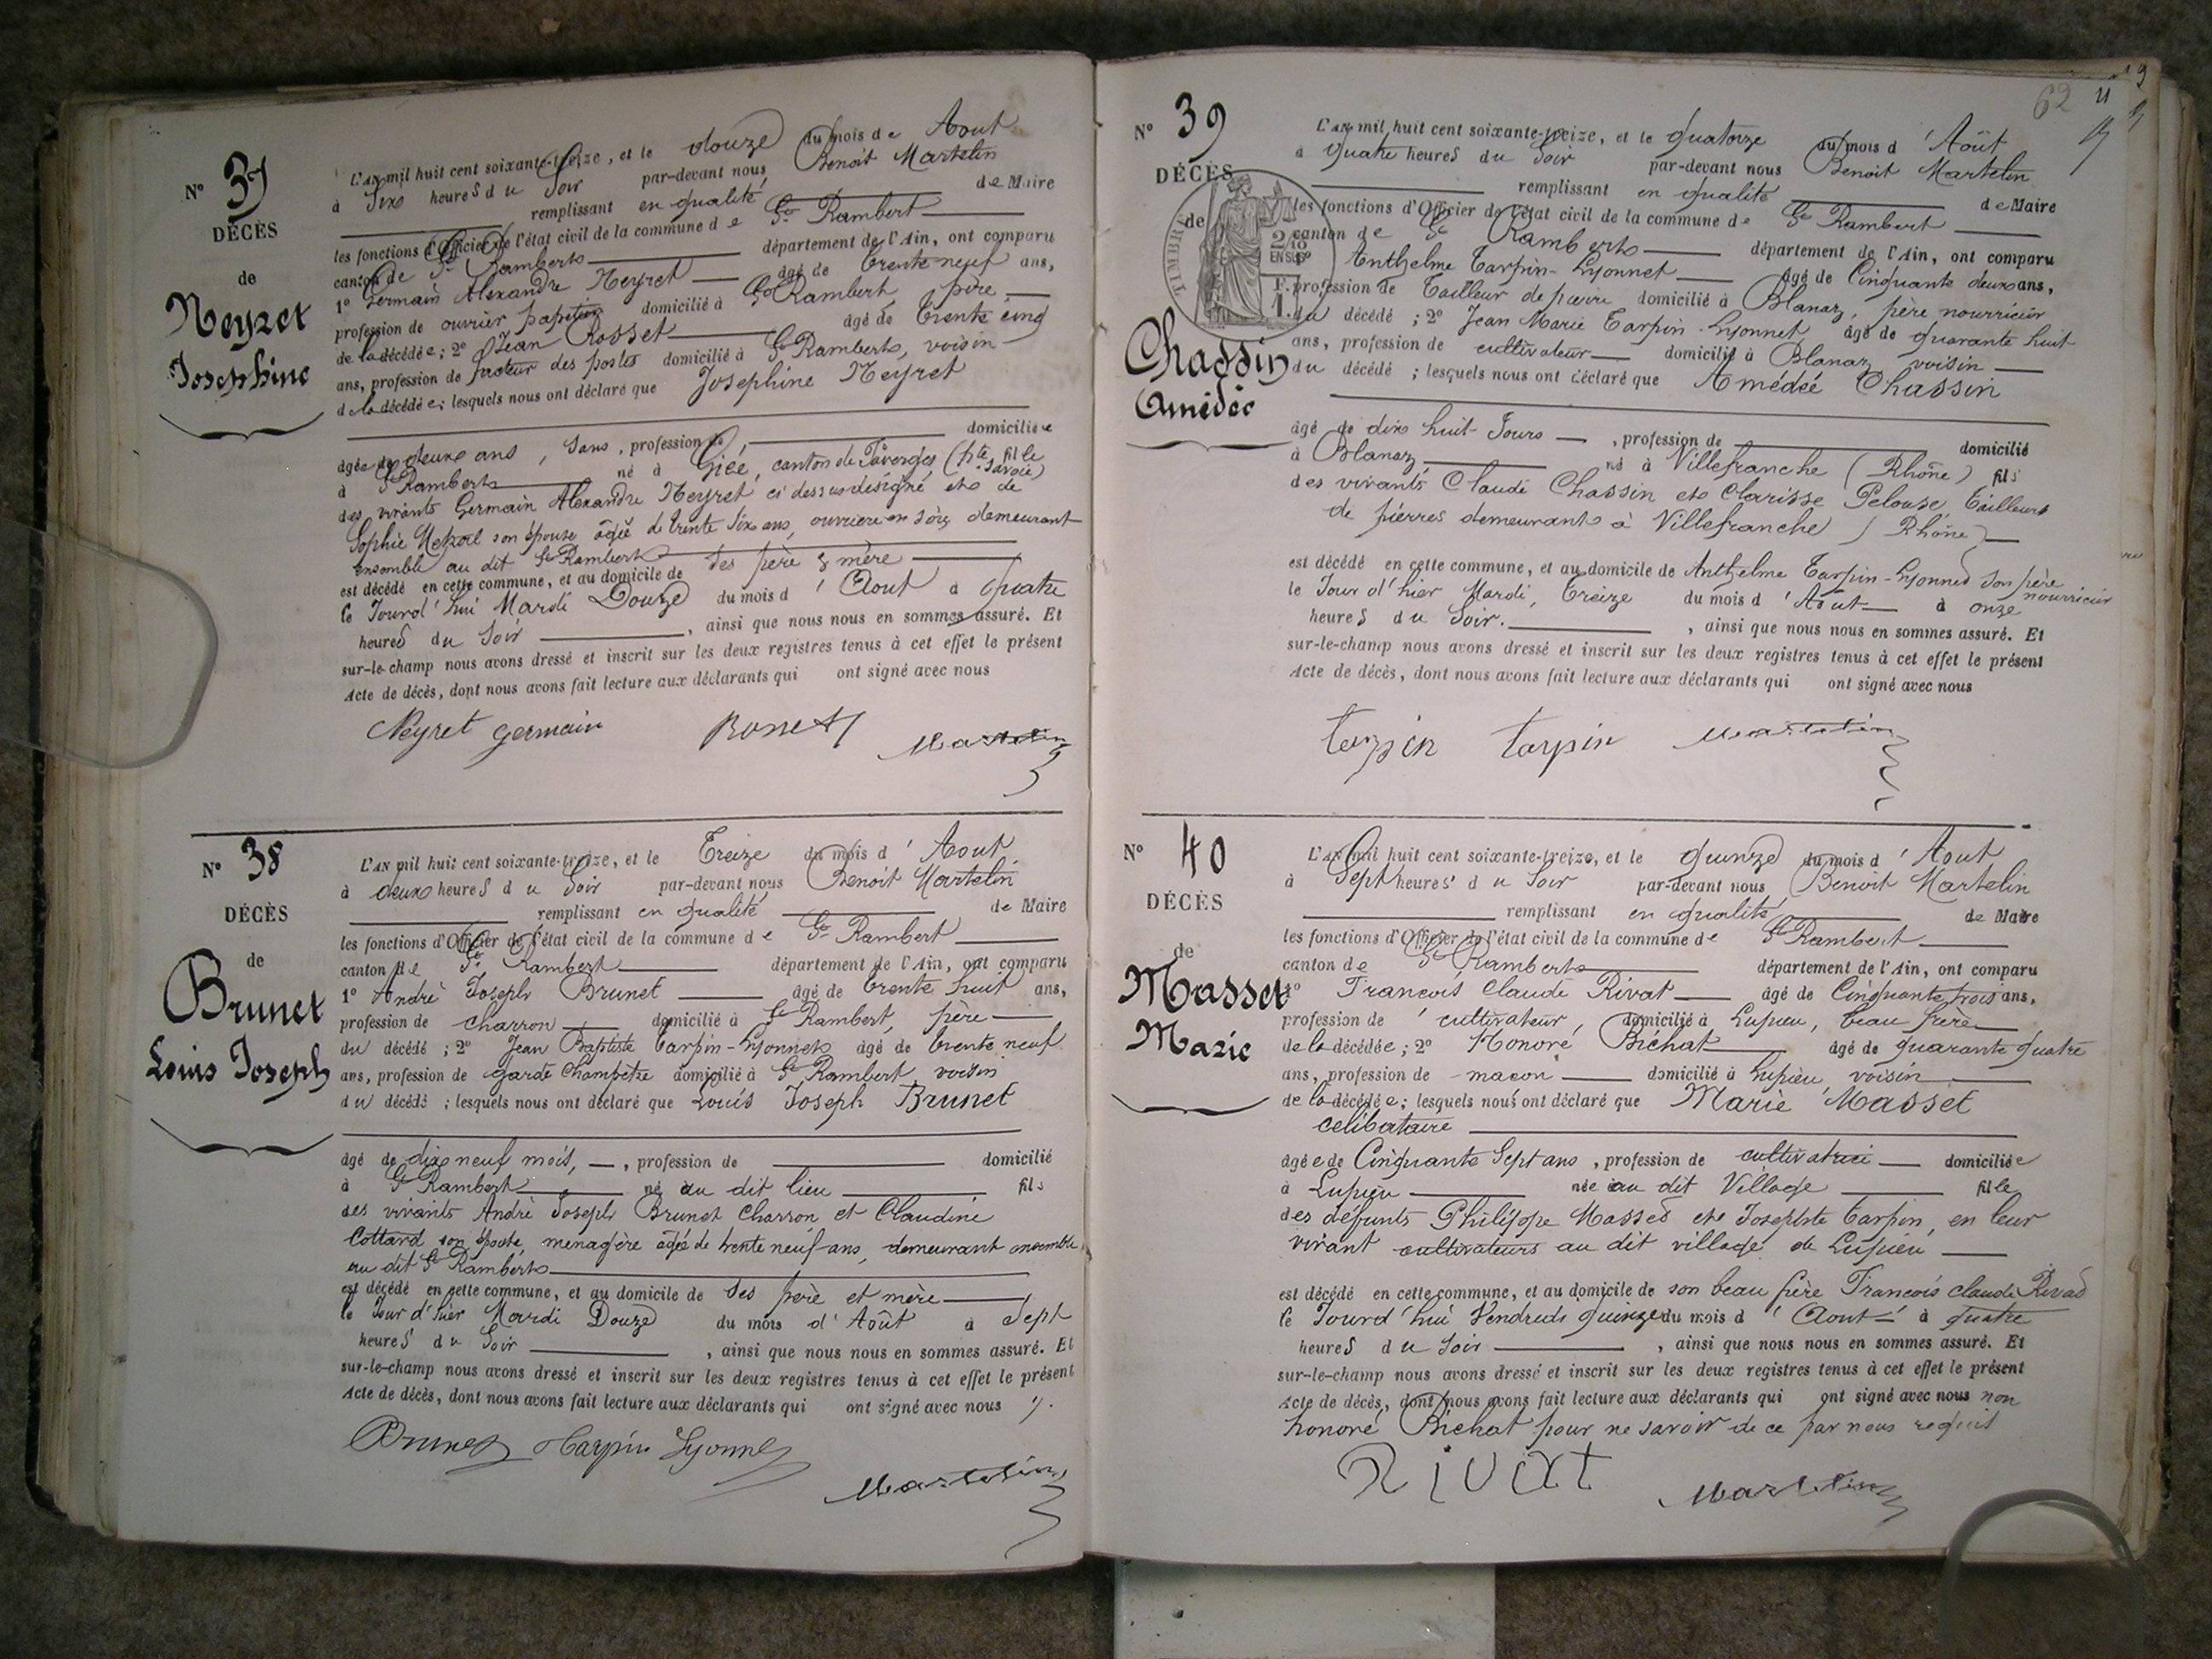 N° 37
DÉCÈS
de
Neyret
Josephine
L'AN mil huit cent soixante-treize, et le douze du mois de Aout
à Six heures du Soir par-devant nous Benoit Martelin
remplissant en qualité de Maire
les fonctions d'Officier de l'état civil de la commune de St Rambert
canton de St Rambert département de l'Ain, ont comparu
1° Germain Alexandre Neyret âgé de trente neuf ans,
profession de ouvrier papetier domicilié à St Rambert, père
de la décédée; 2° Jean Rosset âgé de trente cinq
ans, profession de facteur des postes domicilié à St Rambert, voisin
de la décédée; lesquels nous ont déclaré que Josephine Neyret
âgée de deux ans, sans, profession de, domiciliée
à St Rambert né à Giée, canton de Faverges (hte Savoie) fille
des vivants Germain Alexandre Neyret ci dessus designé et de
Sophie son épouse âgée de trente six ans, ouvriere en soie demeurant
ensemble au dit St Rambert
est décédé en cette commune, et au domicile de ses père & mère
le Jourd'hui Mardi Douze du mois d'Aout à quatre
heures du Soir, ainsi que nous nous en sommes assuré. Et
sur-le-champ nous avons dressé et inscrit sur les deux registres tenus à cet effet le présent
Acte de décès, dont nous avons fait lecture aux déclarants qui ont signé avec nous
Neyret germain Rosset Martelin
N° 38
DÉCÈS
de
Brunet
Louis Joseph
L'AN mil huit cent soixante-treize, et le Treize du mois d'Aout
à deux heures du Soir par-devant nous Benoit Martelin
remplissant en qualité de Maire
les fonctions d'Officier de l'état civil de la commune de St Rambert
canton de St Rambert département de l'Ain, ont comparu
1° André Joseph Brunet âgé de trente huit ans,
profession de charron domicilié à St Rambert, père
du décédé; 2° Jean Baptiste Tarpin-Lyonnet âgé de trente neuf
ans, profession de garde champètre domicilié à St Rambert voisin
du décédé; lesquels nous ont déclaré que Louis Joseph Brunet
âgé de dix neuf mois, profession de domicilié
à St Rambert né au dit lieu fils
des vivants André Joseph Brunet Charron et Claudine
Cottard son épouse, menagère âgée de trente neuf ans, demeurant ensemble
au dit St Rambert
est décédé en cette commune, et au domicile de ses père et mère
le Jour d'hier Mardi Douze du mois d'Août à Sept
heures du Soir, ainsi que nous nous en sommes assuré. Et
sur-le-champ nous avons dressé et inscrit sur les deux registres tenus à cet effet le présent
Acte de décès, dont nous avons fait lecture aux déclarants qui ont signé avec nous
Brunet Tarpin Lyonnet
Martelin
62
N° 39
DÉCÈS
de
Chassin
Amédée
TIMBRE
2/10 EN SUS
L'AN mil huit cent soixante-treize, et le quatorze du mois d'Août
à quatre heures du Soir par-devant nous Benoit Martelin
remplissant en qualité de Maire
les fonctions d'Officier de l'état civil de la commune de St Rambert
canton de St Rambert département de l'Ain, ont comparu
Anthelme Tarpin-Lyonnet âgé de Cinquante deux ans,
profession de Tailleur de pierre domicilié à Blanaz, père nourricier
du décédé; 2° Jean Marie Tarpin-Lyonnet âgé de quarante huit
ans, profession de cultivateur domicilié à Blanaz voisin
du décédé; lesquels nous ont déclaré que Amédée Chassin
âgé de dix huit Jours, profession de domicilié
à Blanaz né à Villefranche (Rhône) fils
des vivants Claude Chassin et Clarisse Pelouse, tailleurs
de pierres demeurant à Villefranche (Rhône)
est décédé en cette commune, et au domicile de Anthelme Tarpin-Lyonnet son père nourricier
le Jour d'hier Mardi, Treize du mois d'Aout à onze
heures du Soir., ainsi que nous nous en sommes assuré. Et
sur-le-champ nous avons dressé et inscrit sur les deux registres tenus à cet effet le présent
Acte de décès, dont nous avons fait lecture aux déclarants qui ont signé avec nous
tarpin tarpin Martelin
N° 40
DÉCÈS
de
Masset
Marie
L'AN mil huit cent soixante-treize, et le quinze du mois d'Aout
à Sept heures du Soir par-devant nous Benoit Martelin
remplissant en qualité de Maire
les fonctions d'Officier de l'état civil de la commune de St Rambert
canton de St Rambert département de l'Ain, ont comparu
1° Francois Claude Rivat âgé de Cinquante trois ans,
profession de cultivateur, domicilié à Lupieu, beau frère
de la décédée; 2° Honoré Bichat âgé de quarante quatre
ans, profession de macon domicilié à Lupieu, voisin
de la décédée; lesquels nous ont déclaré que Marie Masset
celibataire
âgée de Cinquante Sept ans, profession de cultivatrice domiciliée
à Lupieu née au dit Village fille
des defunts Philippe Masset et Josephte Tarpin, en leur
vivant cultivateurs au dit village de Lupieu
est décédé en cette commune, et au domicile de son beau frère Francois claude Rivat
le Jourd'hui Vendredi quinze du mois d'Aout à quatre
heures du Soir, ainsi que nous nous en sommes assuré. Et
sur-le-champ nous avons dressé et inscrit sur les deux registres tenus à cet effet le présent
Acte de décès, dont nous avons fait lecture aux déclarants qui ont signé avec nous non
honoré Bichat pour ne savoir de ce par nous requis
Rivat Martelin